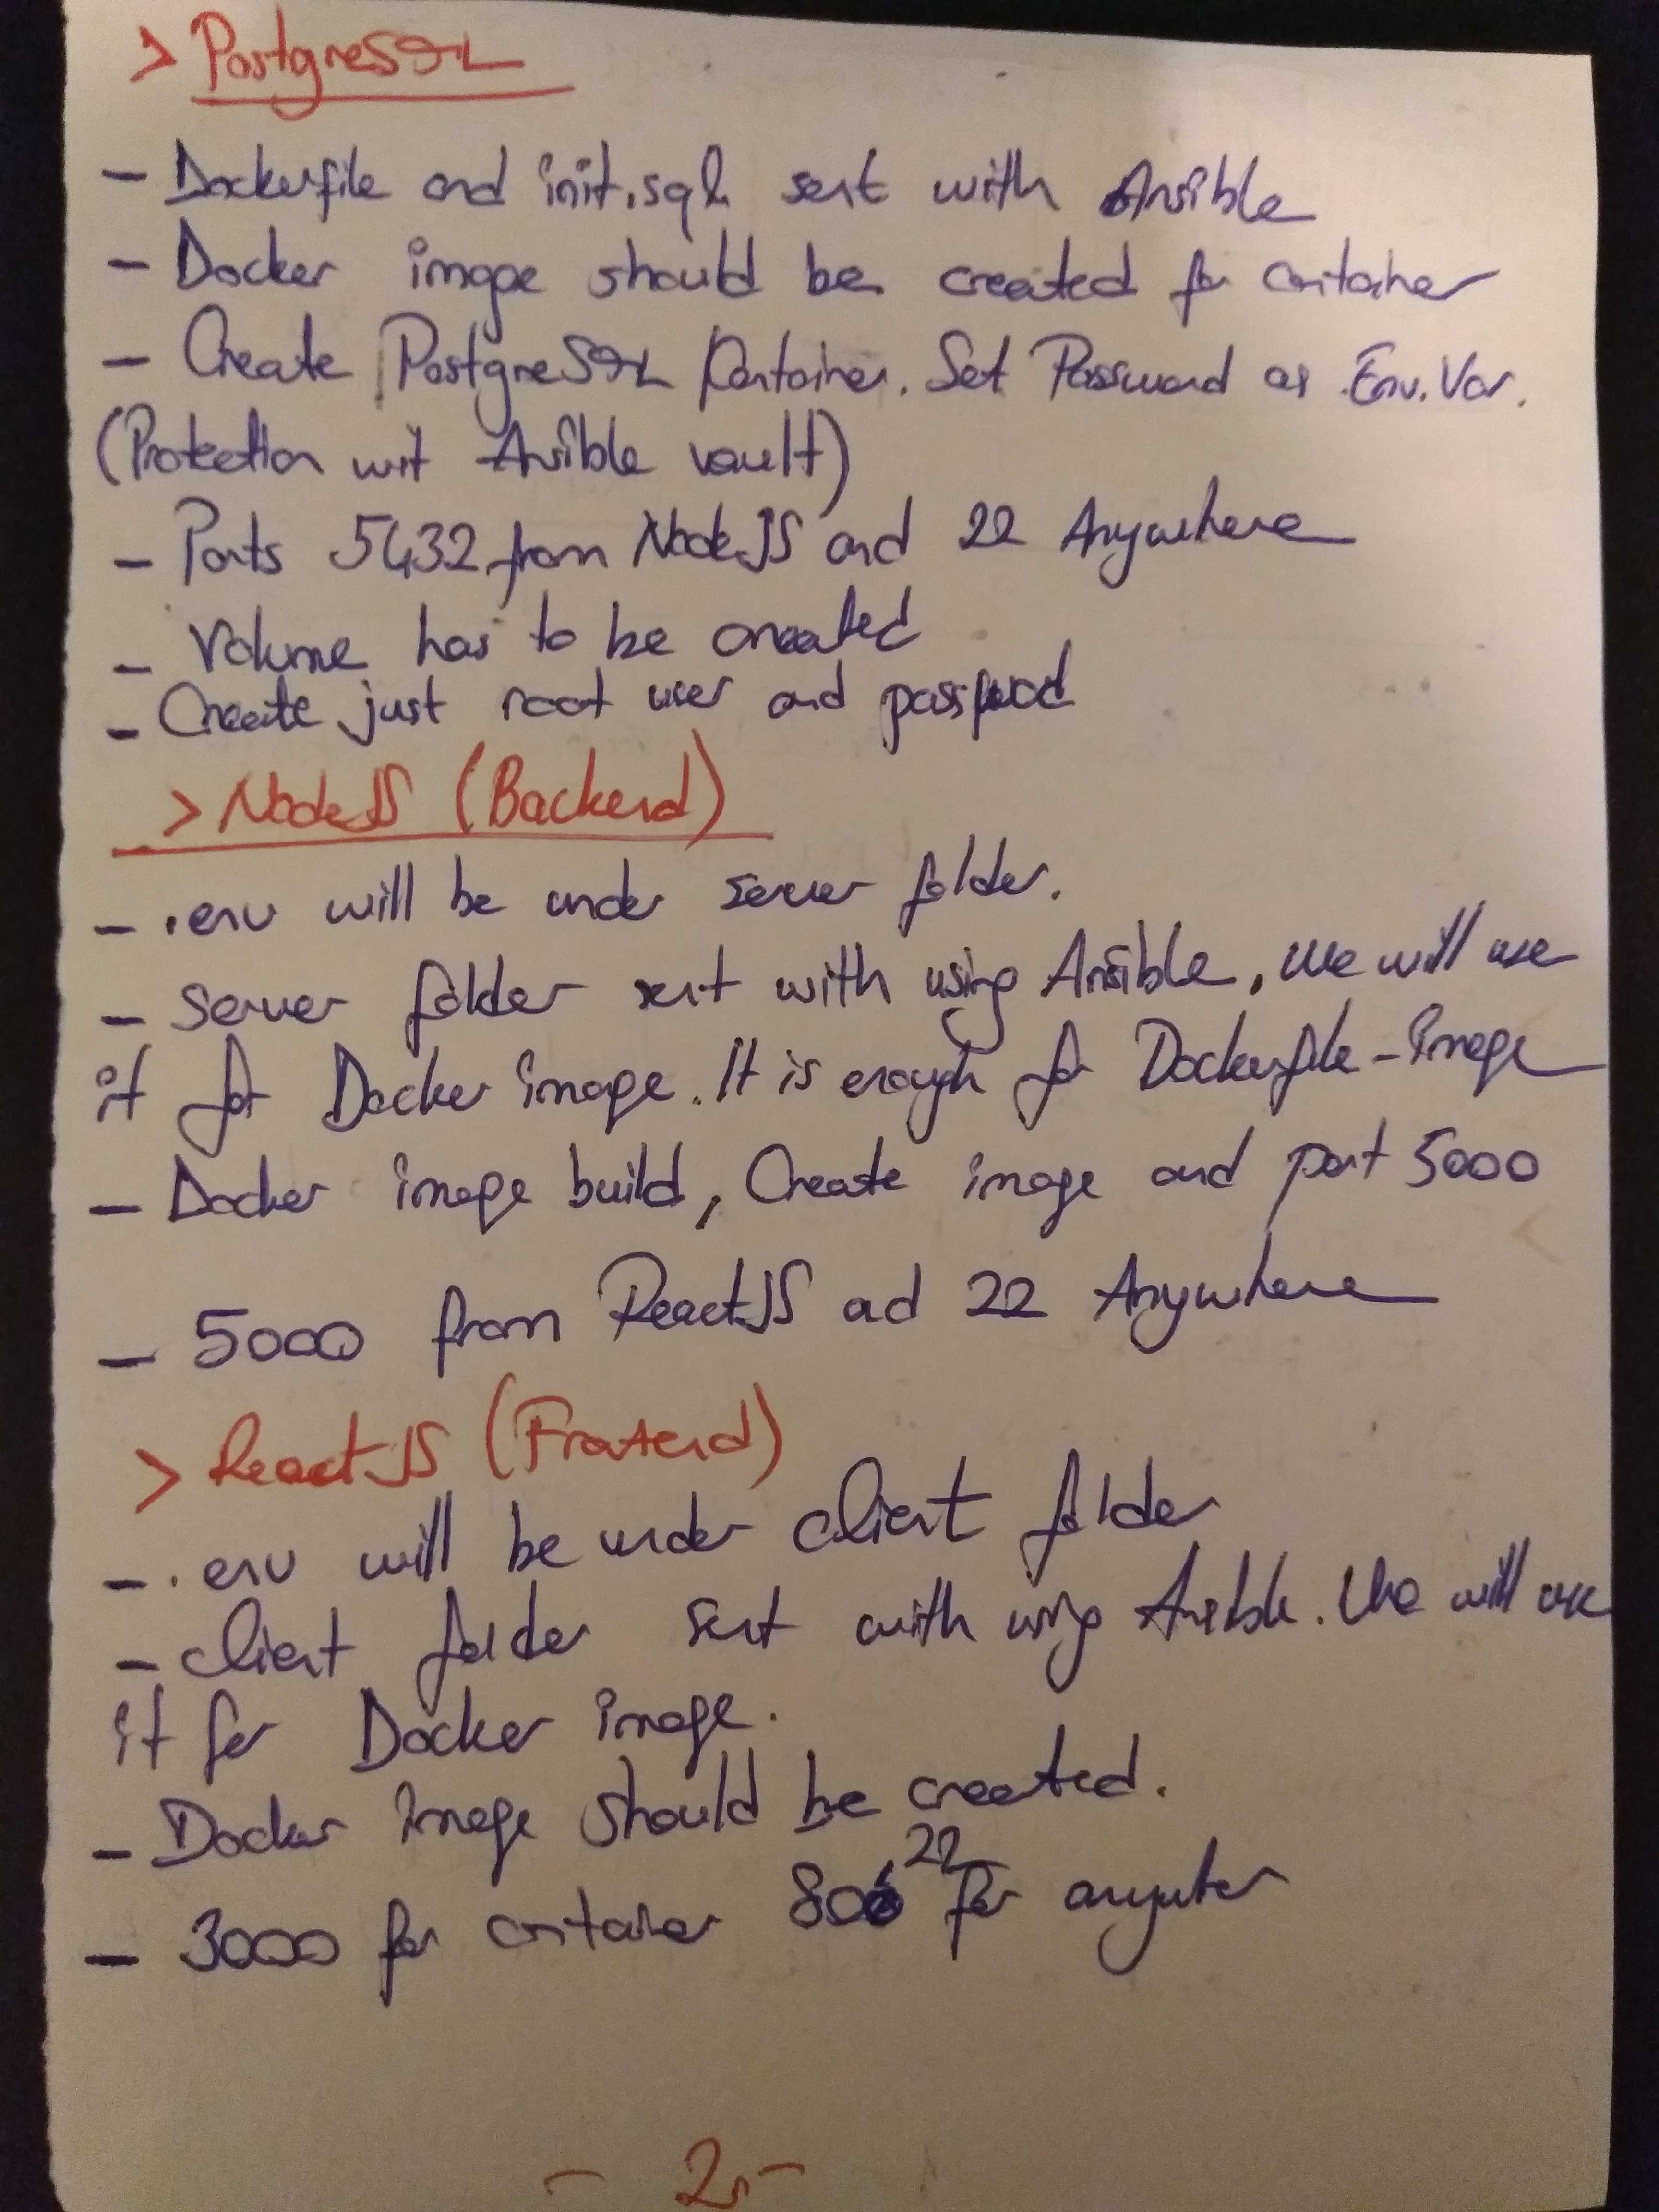 > PostgreSQL
- Dockerfile and init.sql sent with Ansible
- Docker image should be created for container
- Create PostgreSQL Container. Set Password as Env. Var.
(Protection wit Ansible vault)
- Ports 5432 from NodeJS and 22 Anywhere
- Volume has to be created
- Create just root user and password
> NodeJS (Backend)
- .env will be under server folder.
- server folder sent with using Ansible, We will use
it for Docker image. It is enough for Dockerfile-Image
- Docker image build, Create image and port 5000
- 5000 from ReactJS ad 22 Anywhere
> ReactJS (Frontend)
- .env will be under client folder
- client folder sent with using Ansible. We will use
it for Docker image.
- Docker Image should be created.
- 3000 for container 22 for
- 2 -